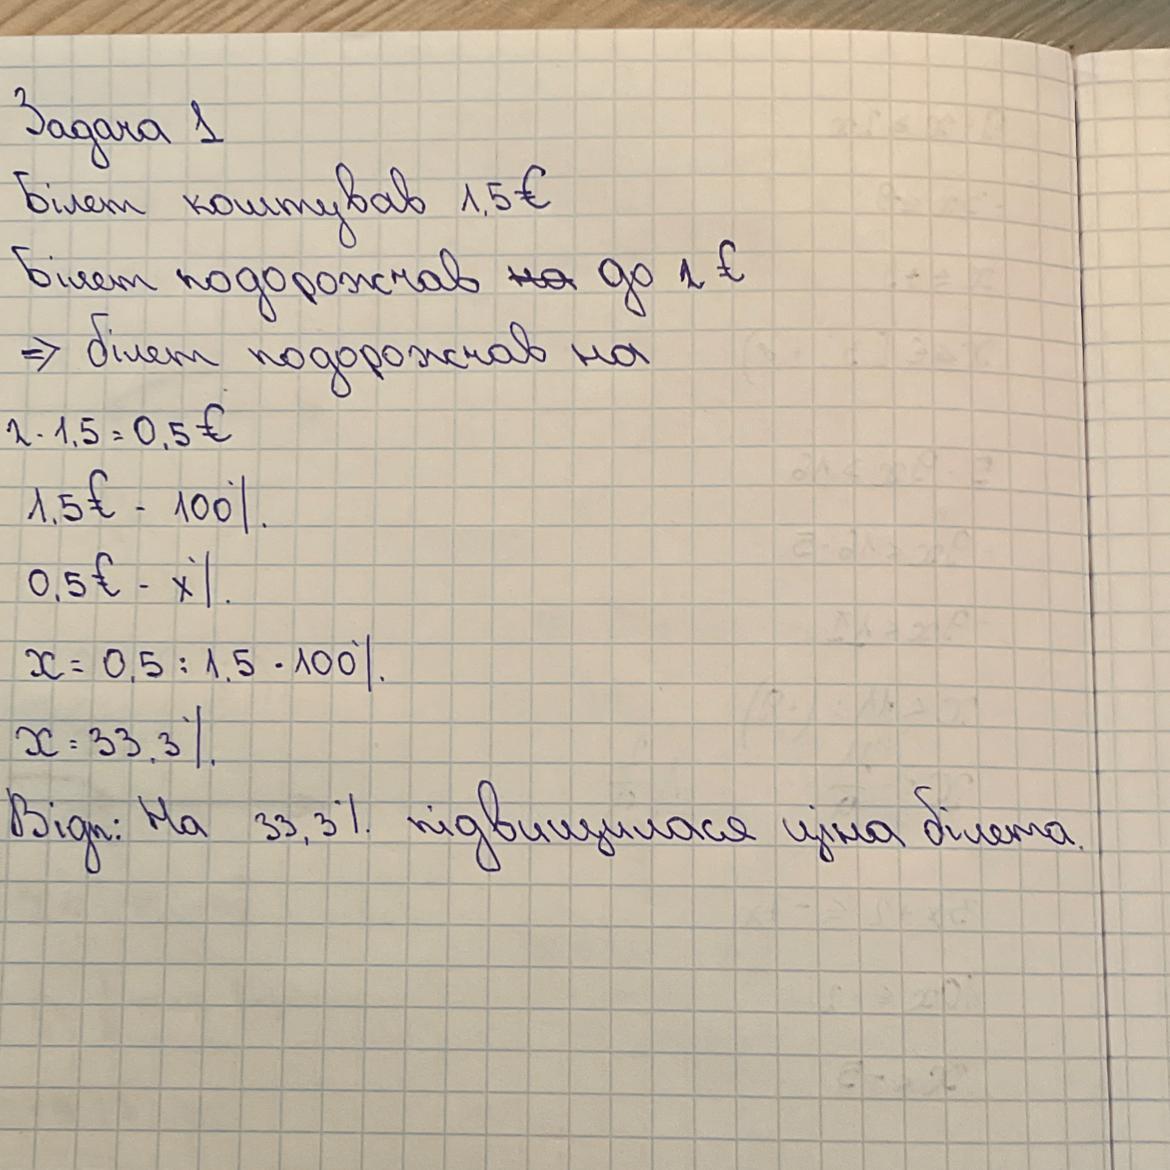 Задача 1
Білет коштував 1,5€
Білет подорожчав на до 2€
⇒ білет подорожчав на
2-1,5=0,5€
1,5€ - 100%.
0,5€ - x%.
x = 0,5 : 1,5 · 100%.
x = 33,3%.
Відп: На 33,3%. підвищилася ціна білета.